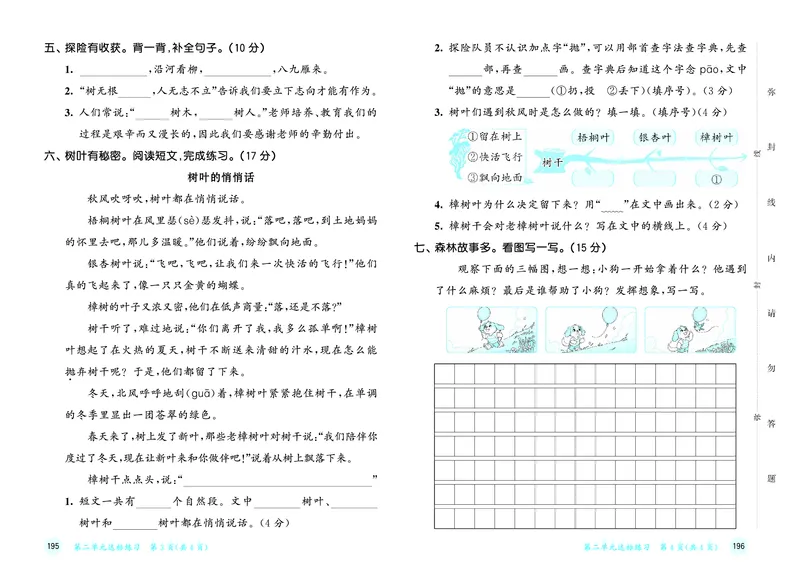 五、探险有收获。背一背,补全句子。(10分)
1. ____________,沿河看柳,____________,八九雁来。
2. “树无根______,人无志不立”告诉我们要立下志向才能有作为。
3. 人们常说:“______树木,______树人。”老师培养、教育我们的
过程是艰辛而又漫长的,因此我们要感谢老师的辛勤付出。
六、树叶有秘密。阅读短文,完成练习。(17分)
树叶的悄悄话
秋风吹呀吹,树叶都在悄悄说话。
梧桐树叶在风里瑟(sè)瑟发抖,说:“落吧,落吧,到土地妈妈
的怀里去吧,那儿多温暖。”他们说着,纷纷飘向地面。
银杏树叶说:“飞吧,飞吧,让我们来一次快活的飞行!”他们
真的飞起来了,像一只只金黄的蝴蝶。
樟树的叶子又浓又密,他们在低声商量:“落,还是不落?”
树干听了,难过地说:“你们离开了我,我多么孤单啊!”樟树
叶想起了在火热的夏天,树干不断送来清甜的汁水,现在怎么能
抛弃树干呢?于是,他们都留了下来。
冬天,北风呼呼地刮(guā)着,樟树叶紧紧抱住树干,在单调
的冬季里显出一团苍翠的绿色。
春天来了,树上发了新叶,那些老樟树叶对树干说:“我们陪伴你
度过了冬天,现在让新叶来和你做伴吧!”说着从树上飘落下来。
樟树干点点头,说:“____________________________________”
1. 短文一共有______个自然段。文中________树叶、________
树叶和________树叶都在悄悄说话。(4分)
195 第二单元达标练习 第3页(共4页)
2. 探险队员不认识加点字“抛”,可以用部首查字法查字典,先查
______部,再查______画。查字典后知道这个字念 pāo,文中
“抛”的意思是______(①扔,投 ②丢下)(填序号)。(3分)
3. 树叶们遇到秋风时是怎么做的?填一填。(填序号)(4分)
①留在树上
②快活飞行
③飘向地面
树干
梧桐树叶 银杏树叶 樟树叶
①
4. 樟树叶为什么决定留下来?用“____”在文中画出来。(2分)
5. 樟树干会对老樟树叶说什么?写在文中的横线上。(4分)
七、森林故事多。看图写一写。(15分)
观察下面的三幅图,想一想:小狗一开始拿着什么?他遇到
了什么麻烦?最后是谁帮助了小狗?发挥想象,写一写。
第二单元达标练习 第4页(共4页) 196
弥
封
线
内
请
勿
答
题